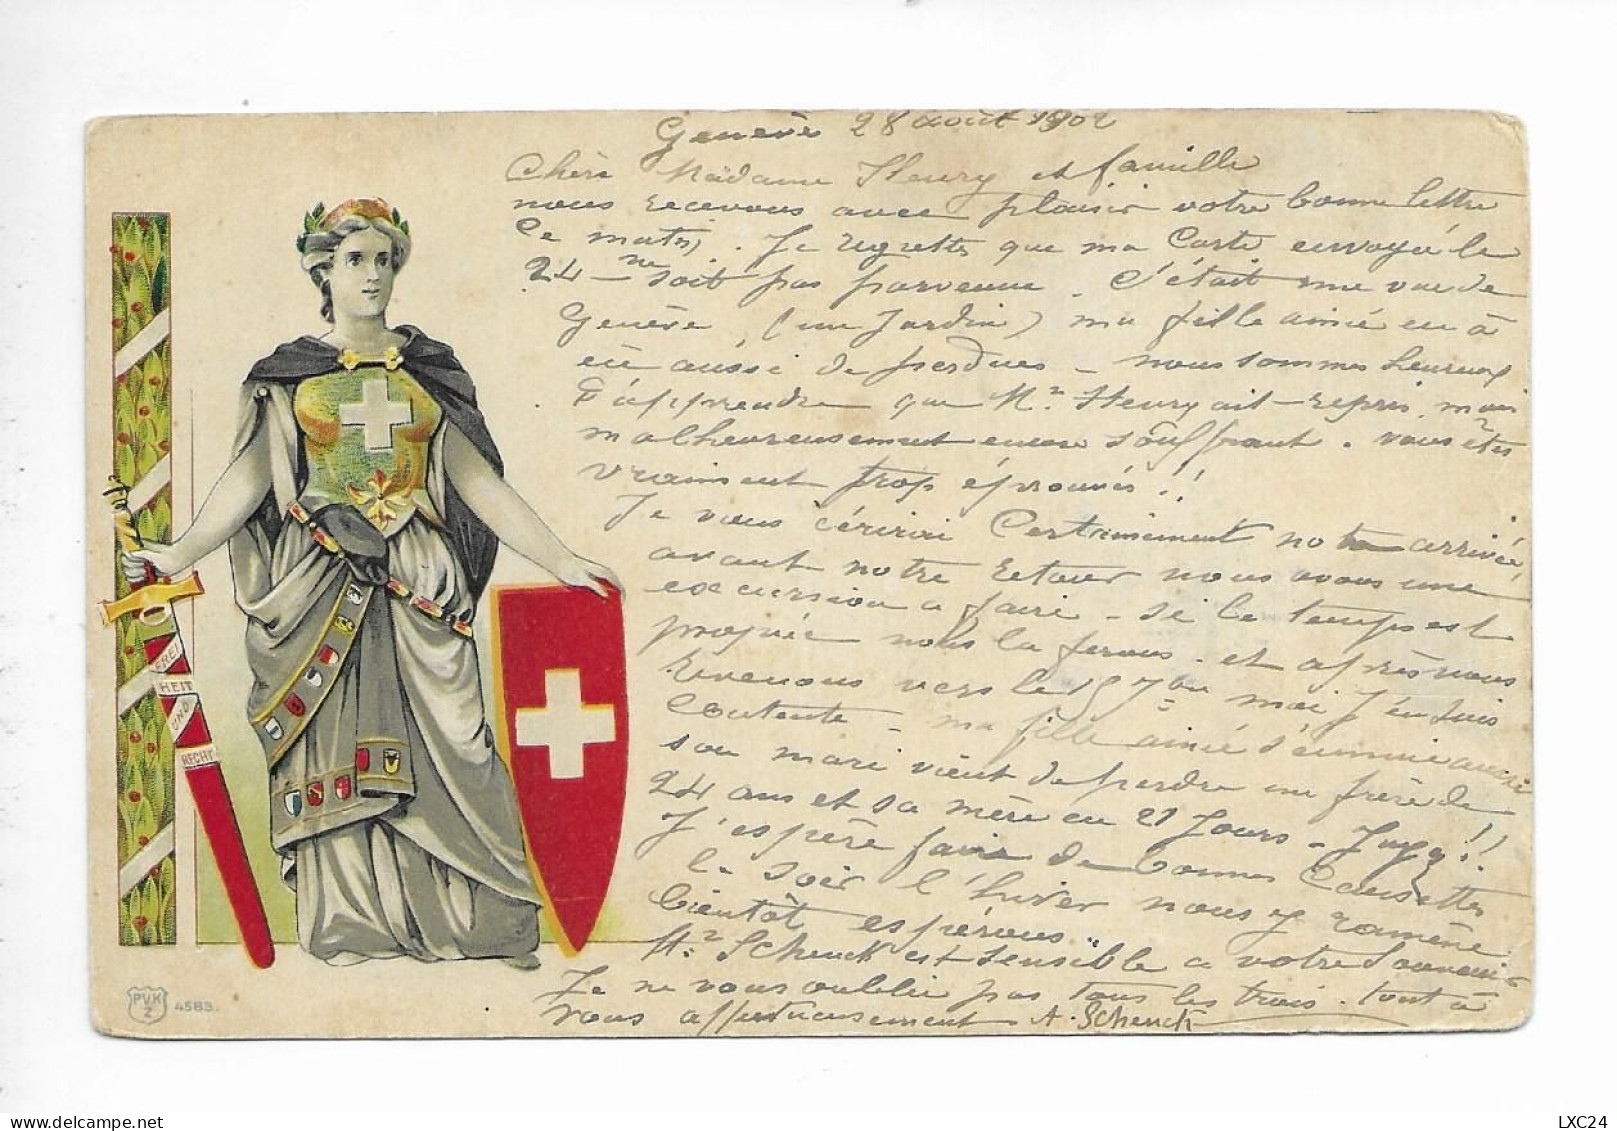 Genève 28 août 1902
Chère Madame Fleury et famille
nous recevons avec plaisir votre bonne lettre
Ce matin. Je regrette que ma Carte envoyée le
24 ne soit pas parvenue. C'était une vue de
Genève (un Jardin) ma fille ainée en à
eu aussi de perdues – nous sommes heureux
d'apprendre que Mr. Fleury ait repris, mais
malheureusement encore souffrant. vous êtes
vraiment trop éprouvés!!
Je vous écrirai Certainement notre arrivée,
avant notre retour nous avons une
excursion a faire – si le temps est
propice nous la ferons. et après nous
revenons vers le 15 7bre moi J'en suis
Contente – ma fille ainée s'ennuie aussi
son mari vient de perdre un frère de
24 ans et sa mère en 21 Jours – Jugez!!
J'espère faire de bonnes Causettes
le soir l'hiver nous y ramène
bientôt espérons.
Mr. Schenck est sensible a votre Souvenir
Je ne vous oublie pas tous les trois. tout à
vous affectueusement A. Schenck
FREI
HEIT
UND
RECHT
PVK
Z
4583.
LXC24